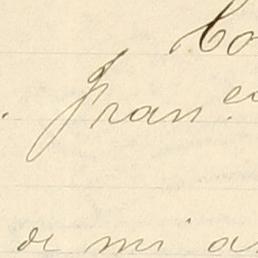 Co
Fran.co
de mi a